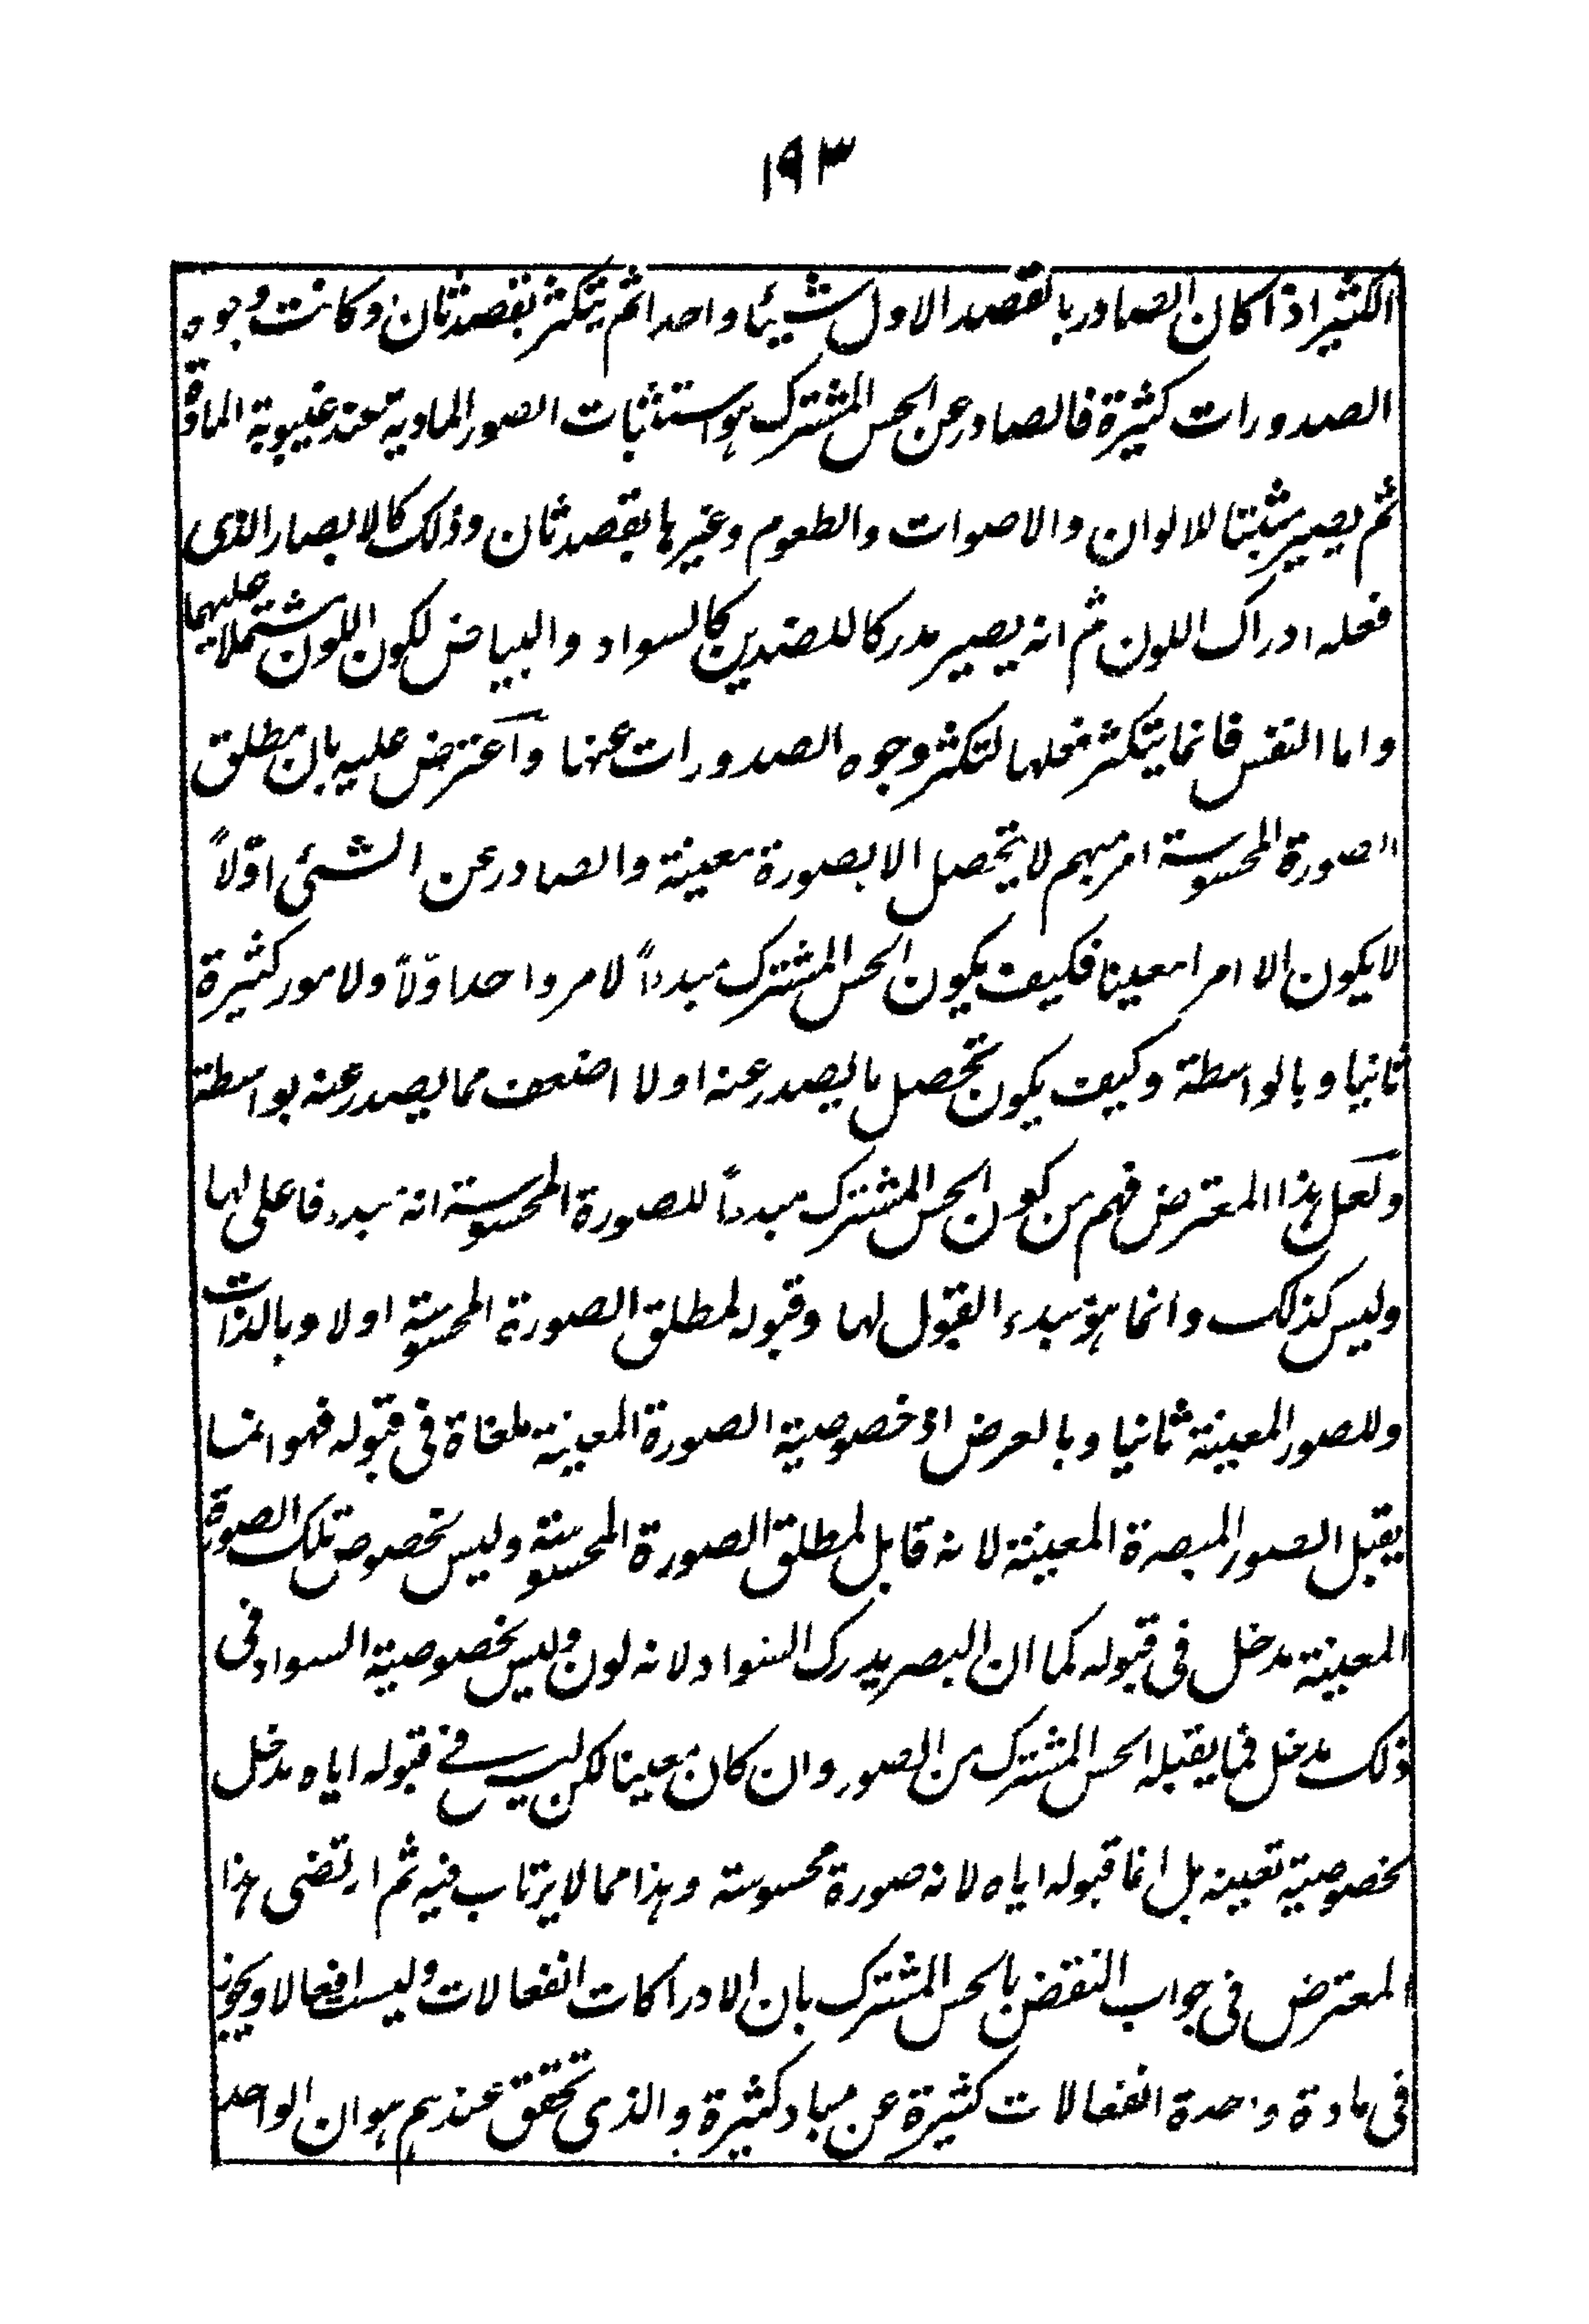 ١٩٣
الكثير اذا كان الصادر بالقصد الاول شيئا واحدا ثم يتكثر بقصد ثان وكانت وجوه
الصدورات كثيرة فالصادر عن الحس المشترك هو استثبات الصور المادية عند غيبوبة المادة
ثم يصير مثبتا للالوان والاصوات والطعوم وغيرها بقصد ثان وذلك كالابصار الذى
فعله ادراك اللون ثم انه يصير مدركا للضدين كالسواد والبياض لكون اللون مشتملا عليهما
واما النفس فانما يتكثر فعلها لتكثر وجوه الصدورات عنها وآعترض عليه بان مطلق
الصورة المحسوسة امر مبهم لا يتحصل الا بصورة معينة والصادر عن الشئى اوّلاً
لا يكون الا امرا معينا فكيف يكون الحس المشترك مبدءاً لامر واحد اوّلاً ولامور كثيرة
ثانيا وبالواسطة وكيف يكون تحصل ما يصدر عنه اولا اضعف مما يصدر عنه بواسطة
ولعل هذا المعترض فهم من كون الحس المشترك مبدءاً للصورة المحسوسة انه مبدء فاعلى لها
وليس كذلك وانما هو مبدء القبول لها وقبوله لمطلق الصورة المحسوسة اولا وبالذات
وللصور المعينة ثانيا وبالعرض اذ خصوصية الصورة المعينة ملغاة فى قبوله فهو انما
يقبل الصور المبصرة المعينة لانه قابل لمطلق الصورة المحسوسة وليس لخصوص تلك الصورة
المعينة مدخل فى قبوله كما ان البصر يدرك السواد لانه لون وليس لخصوصية السواد فى
ذلك مدخل فما يقبله الحس المشترك من الصور وان كان معينا لكن ليس فے قبوله اياه مدخل
لخصوصية تعينه بل انما قبوله اياه لانه صورة محسوسة وهذا مما لا يرتاب فيه ثم ارتضى هذا
المعترض فى جواب النقض بالحس المشترك بان الادراكات انفعالات وليست افعالا ويجوز
فى مادة واحدة انفعالات كثيرة عن مباد كثيرة والذى تحقق عندهم هو ان الواحد